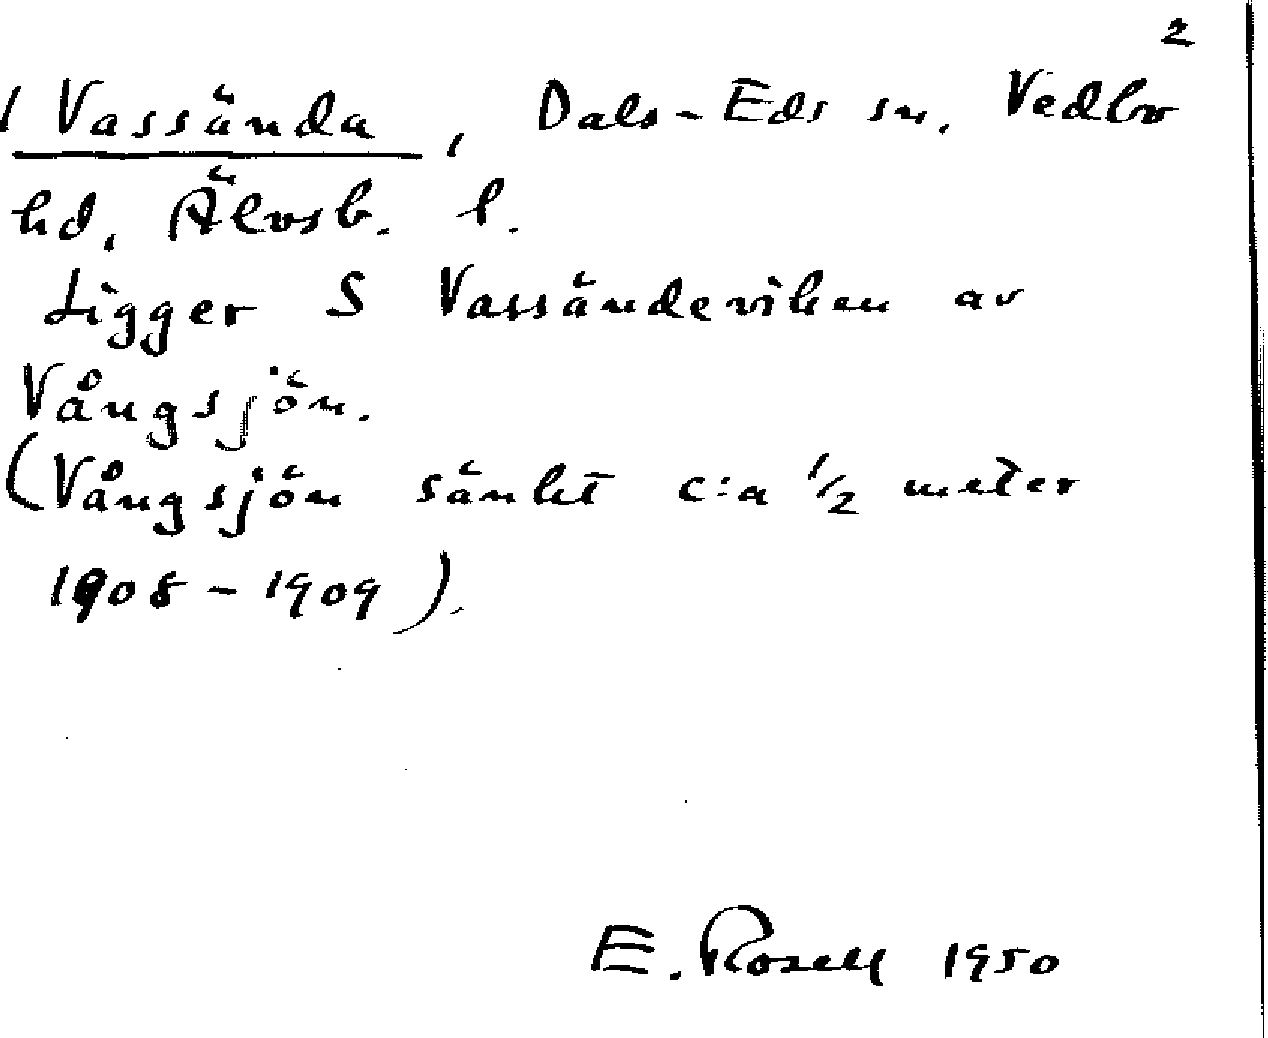 2
/ Vassända, Dals-Eds sn. Vedbo
hd, Älvsb. l.
Ligger S Vassändeviken av
Vångsjön.
(Vångsjön sänkt c:a 1/2 meter
1908-1909).
E. Rosell 1950